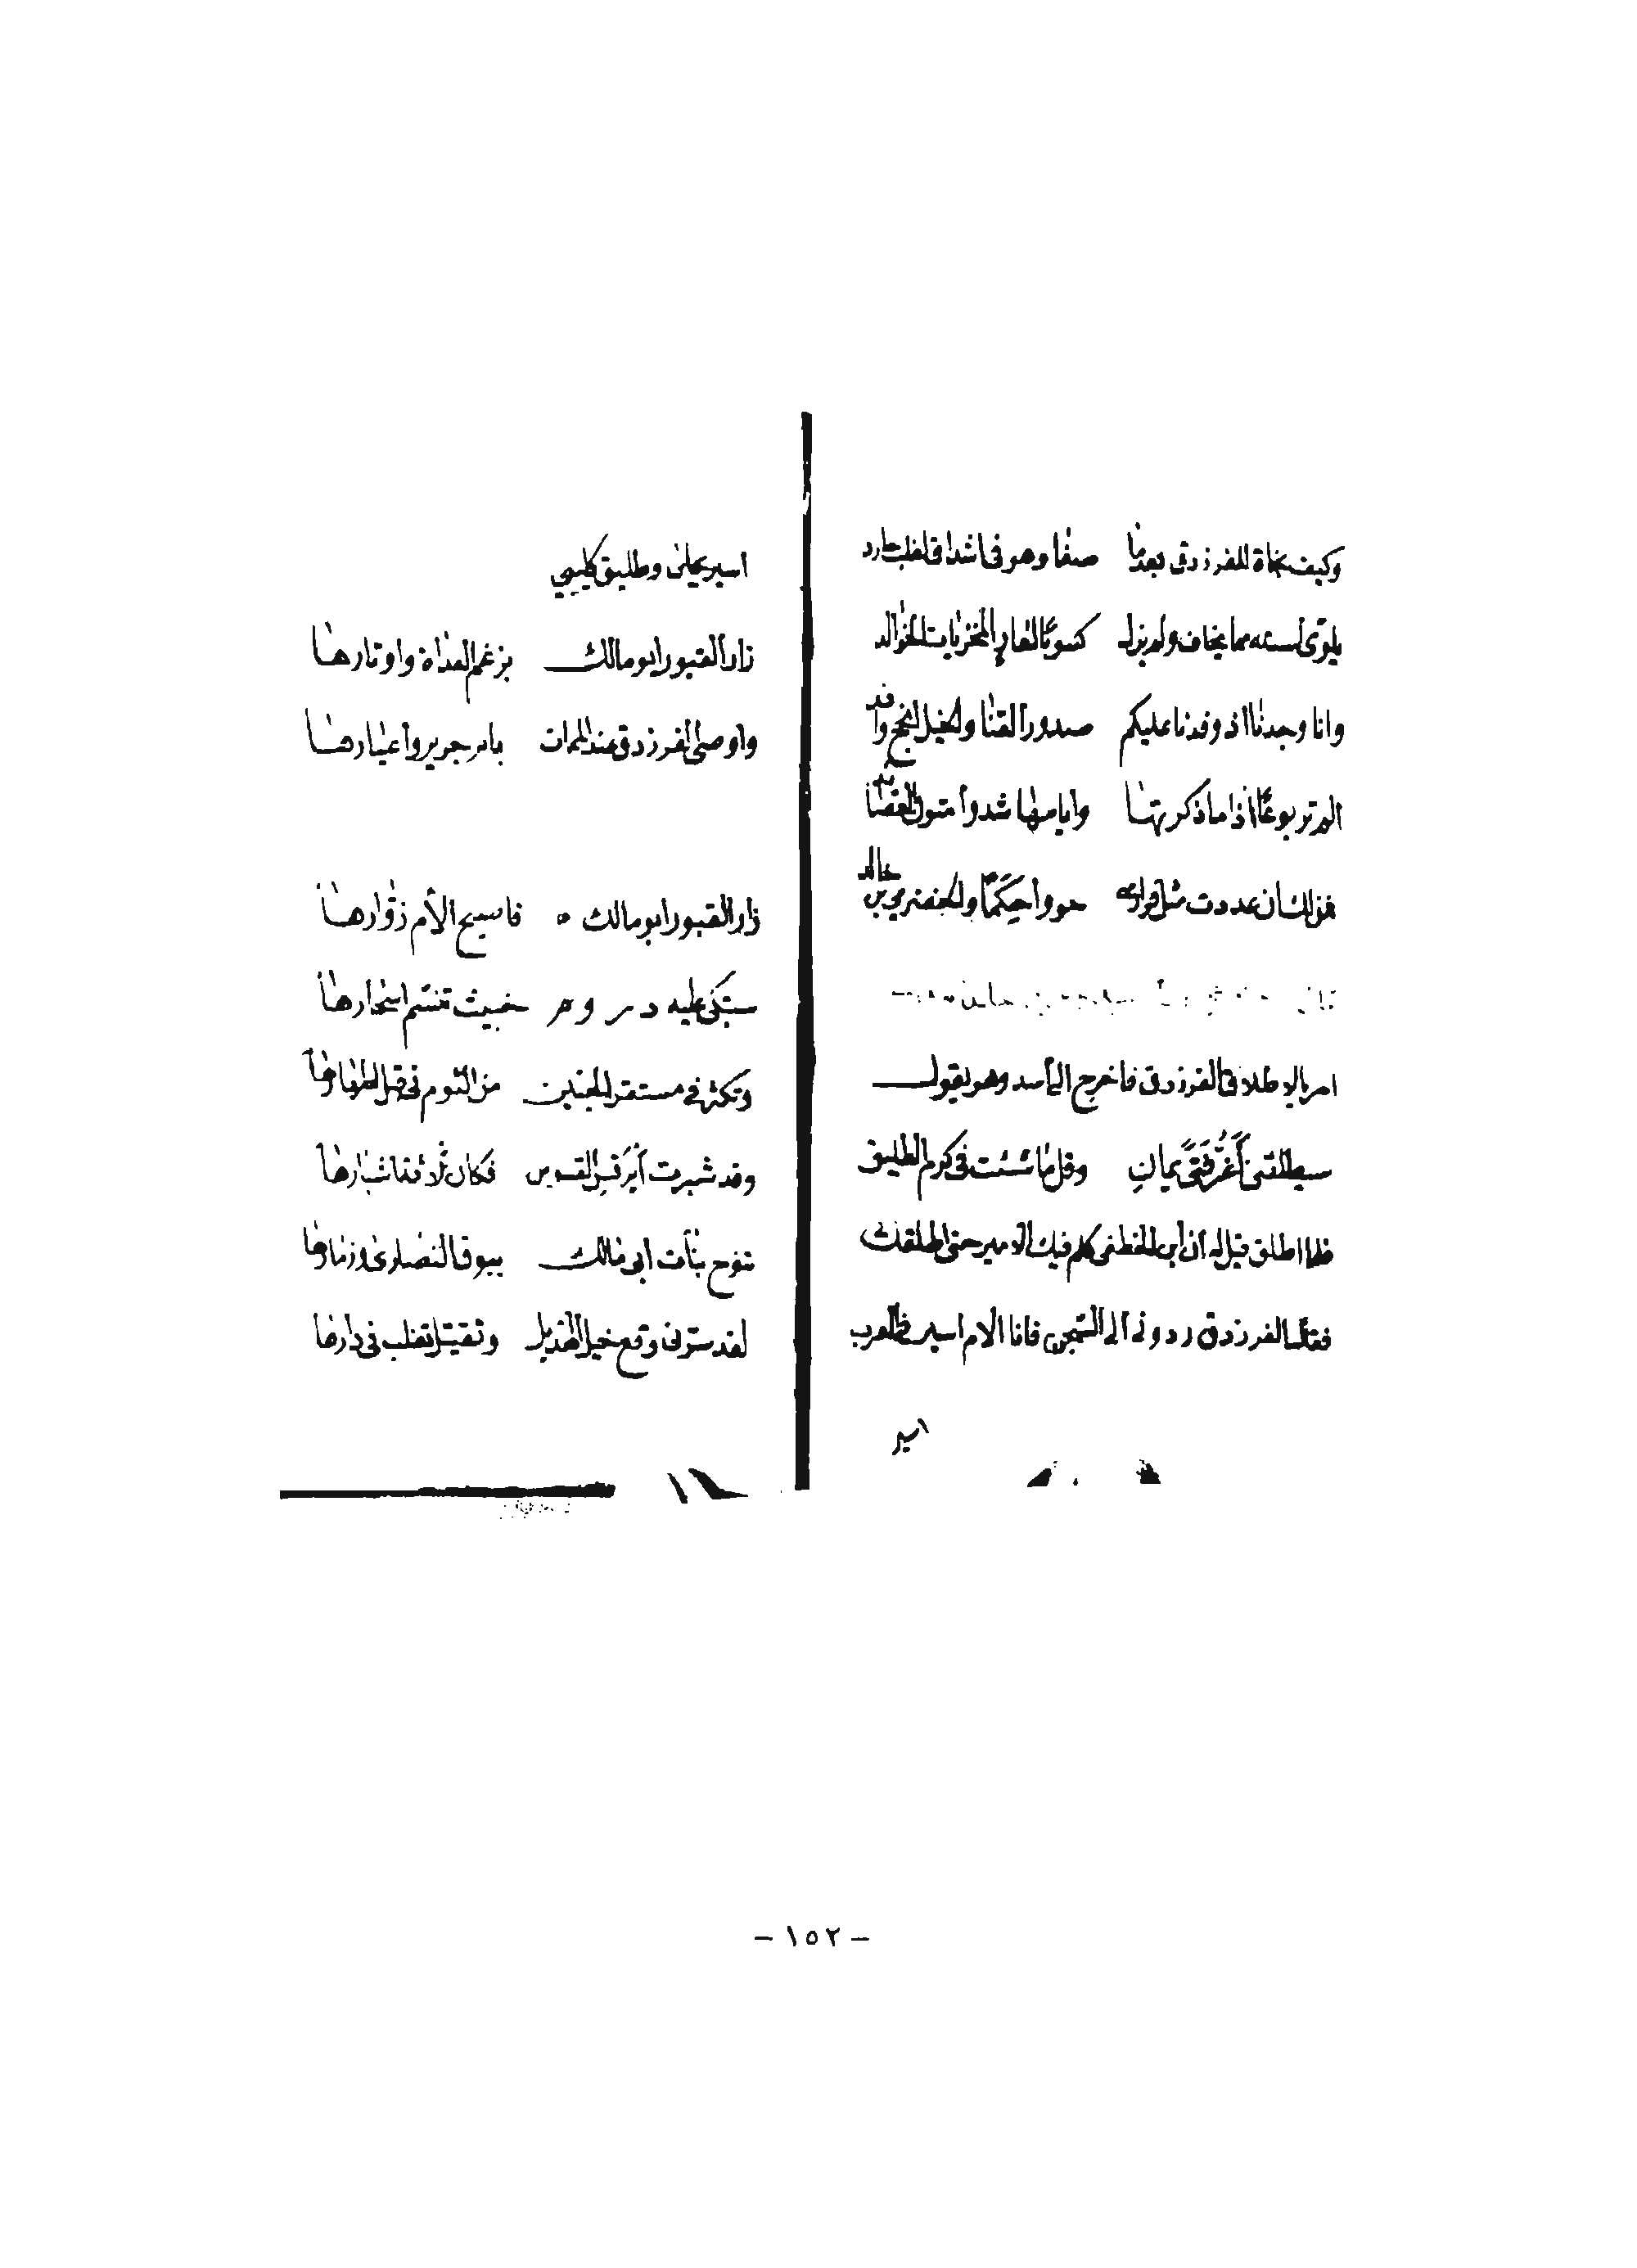 وكيف نجاة للفرزدق بعدما صفا وهو في اشداق اغلب حارد
يلوى استه مما يخاف ولم يزل كسوبًا لعار المخزيات الخوالد
وانا وجدنا اذ وفدنا عليكم صدور القنا والخيل انجح وافد
الم تر يربوعًا اذا ما ذكرتها وايامها شدوا متون القصائد
فمن لك ان عددت مثل حووا حكمًا والحضرمي بن خالد
امر باطلاق الفرزدق فاخرج الى أسد وهو يقول
سيطلقنى أَغَرُّ فَتًى يمانِ وقل ما شئت في كرم الطليق
فلما اطلق قيل له ان ابن الخطفى كلم فيك الامير حتى اطلقك
فقال الفرزدق ردوني الى السجن فانا الام اسير في العرب
اسير
اسير وطليق كليبي
زار القبور ابو مالك برغم العداة واوتارها
واوصى الفرزدق عند الممات بام جرير وأعيارها
زار القبور ابو مالك فاصبح الأم زوّارها
ستبكي عليه خبيث تنسّم اسحارها
من الثوم في قبل اطهارها
وقد شبرت القس فكان ثلاثة اشبارها
تنوح بنات ابى مالك ببوق النصارى وزمارها
لقد سرّنى وقع خيل الهذيل وتقتيل تغلب في دارها
- ١٥٢ -